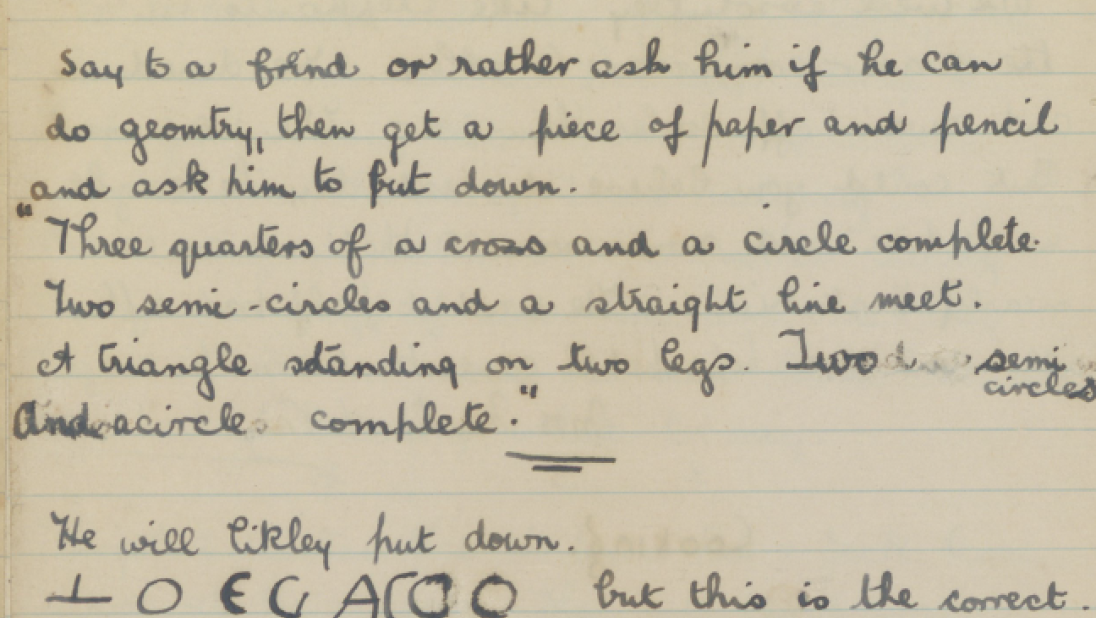 Say to a frind or rather ask him if he can
do geomtry, then get a piece of paper and pencil
and ask him to put down.
"Three quarters of a cross and a circle complete.
Two semi-circles and a straight line meet.
A triangle standing on two legs. Two semi
circles
And a circle complete."
He will likley put down.
but this is the correct.